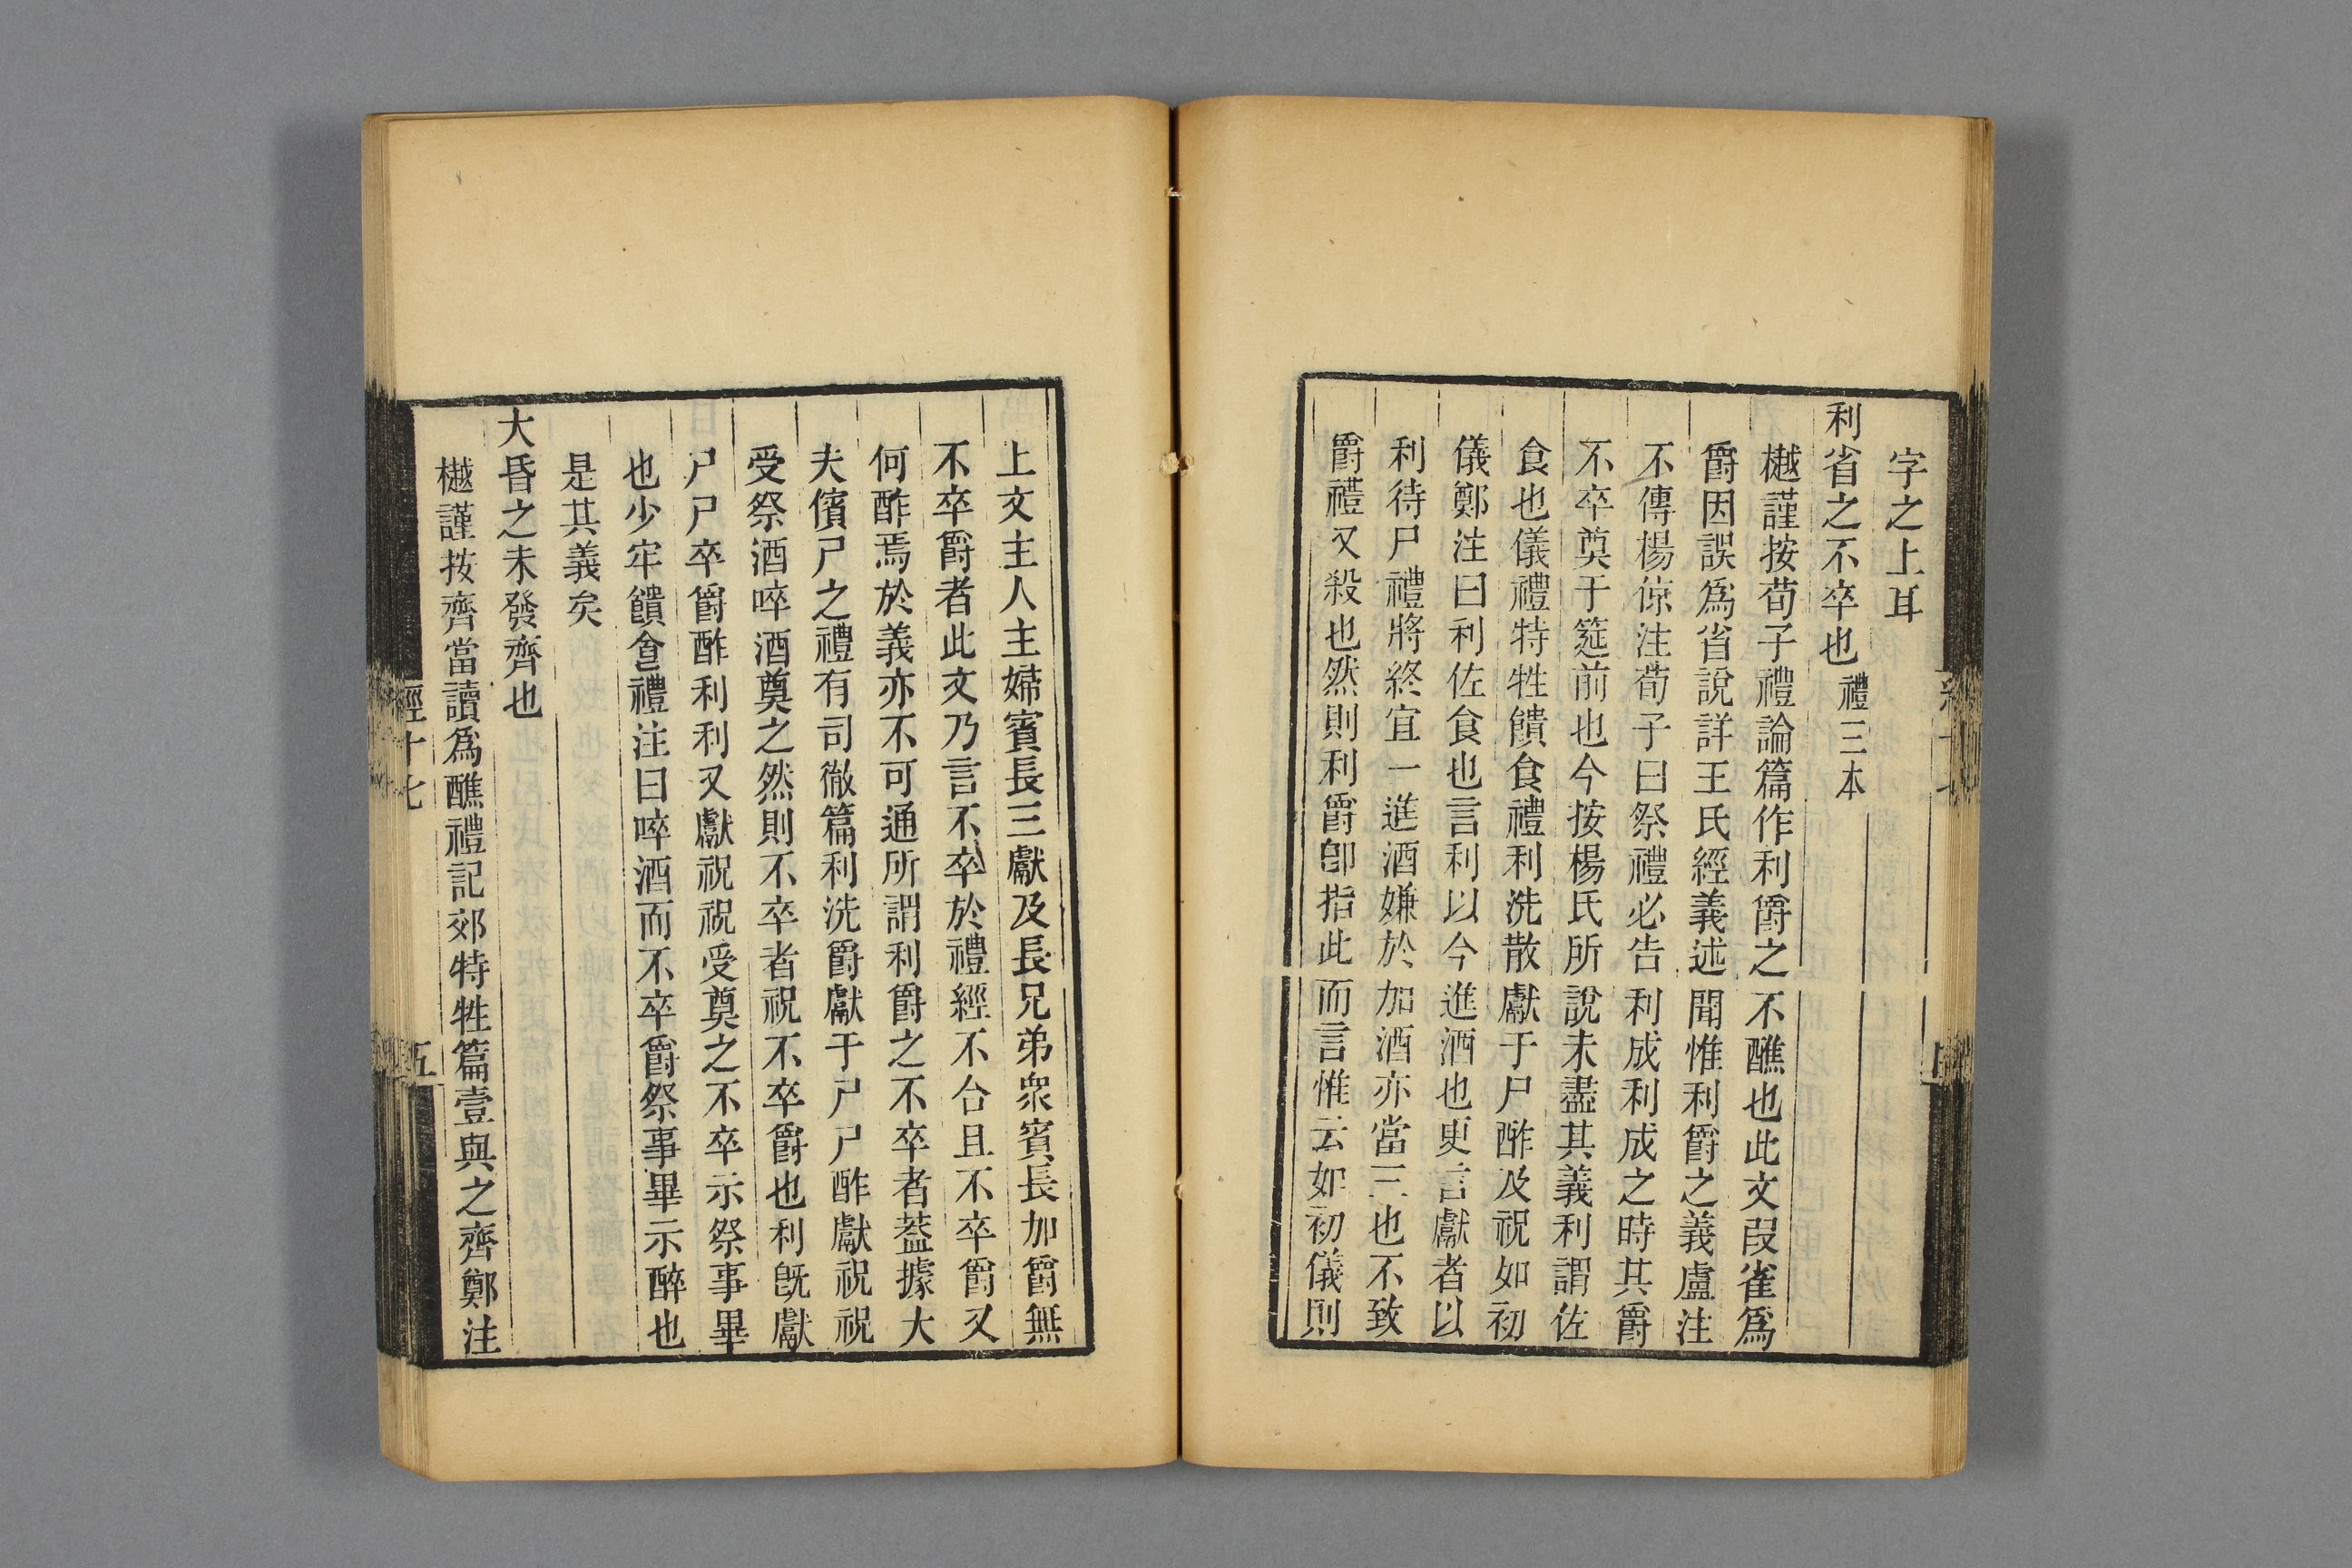 字之上耳
利省之不卒也禮三本
樾謹按荀子禮論篇作利爵之不醮也此文叚雀爲
爵因誤爲省說詳王氏經義述聞惟利爵之義盧注
不傳楊倞注荀子曰祭禮必告利成利成之時其爵
不卒奠于筵前也今按楊氏所說未盡其義利謂佐
食也儀禮特牲饋食禮利洗散獻于尸酢及祝如初
儀鄭注曰利佐食也言利以今進酒也更言獻者以
利待尸禮將終宜一進酒嫌於加酒亦當三也不致
爵禮又殺也然則利爵卽指此而言惟云如初儀則
上文主人主婦賓長三獻及長兄弟衆賓長加爵無
不卒爵者此文乃言不卒於禮經不合且不卒爵又
何酢焉於義亦不可通所謂利爵之不卒者葢據大
夫儐尸之禮有司徹篇利洗爵獻于尸尸酢獻祝祝
受祭酒啐酒奠之然則不卒者祝不卒爵也利旣獻
尸尸卒爵酢利利又獻祝祝受奠之不卒示祭事畢
也少牢饋食禮注曰啐酒而不卒爵祭事畢示醉也
是其義矣
大昏之未發齊也
樾謹按齊當讀爲醮禮記郊特牲篇壹與之齊鄭注
經十七
五